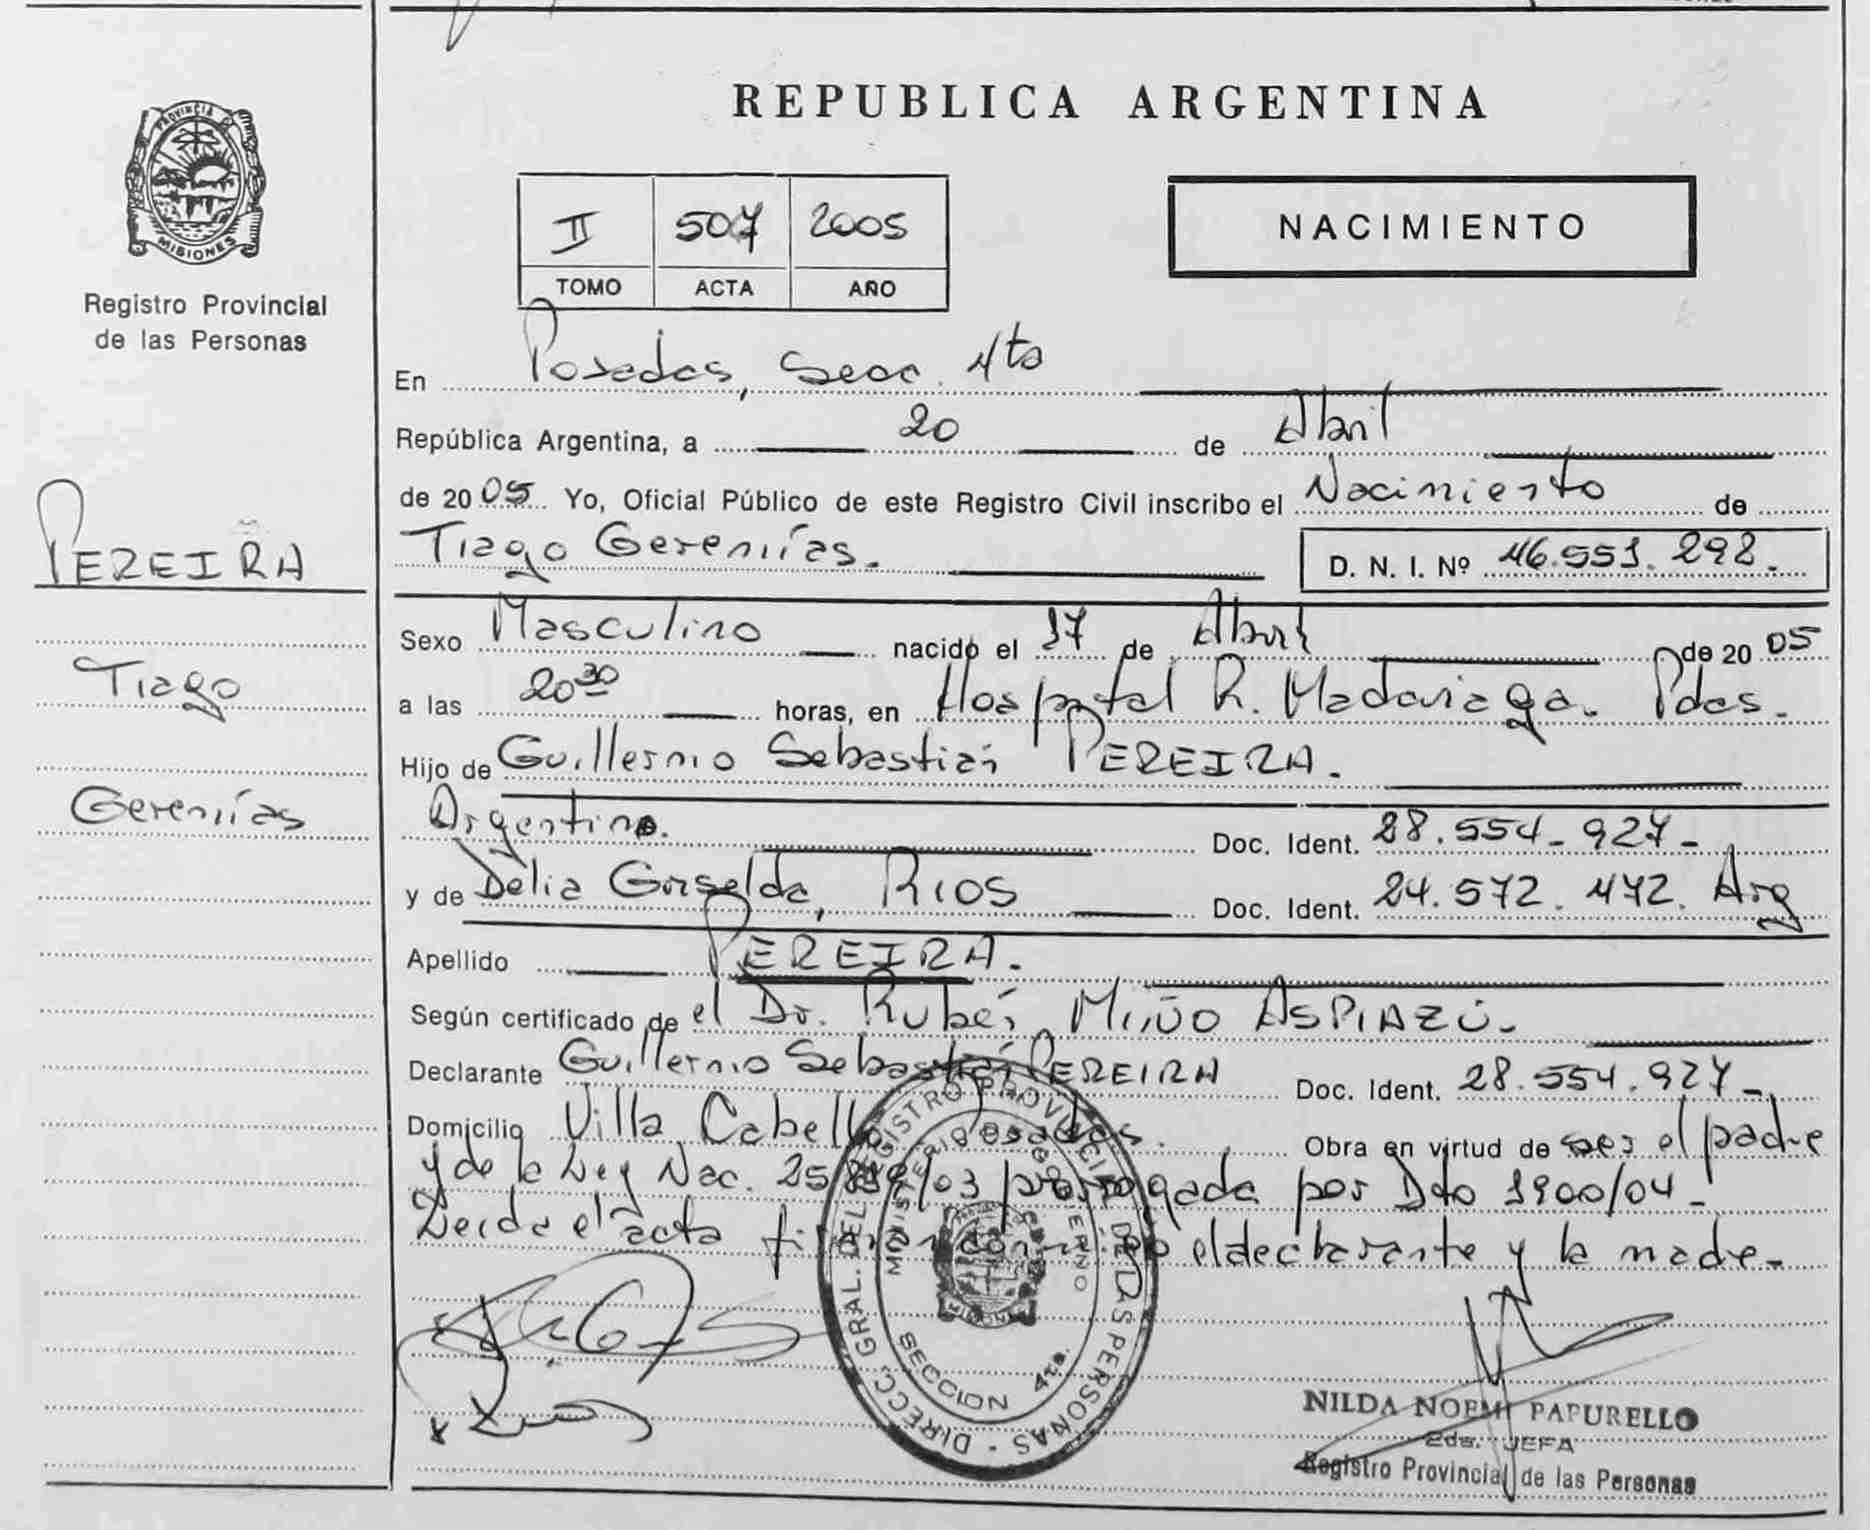 REPUBLICA ARGENTINA
PROVINCIA
MISIONES
Registro Provincial
de las Personas
II 507 2005
TOMO ACTA AÑO
NACIMIENTO
En Posadas, Secc. 4ta
República Argentina, a 20 de Abril
de 2005 Yo, Oficial Público de este Registro Civil inscribo el Nacimiento de
Tiago Geremías.
D. N. I. Nº 46.551.292.
PEREIRA
Tiago
Geremías
Sexo Masculino nacido el 17 de Abril de 2005
a las 20 30 horas, en Hospital R. Madariaga. Pdas.
Hijo de Guillermo Sebastián PEREIRA.
Argentino. Doc. Ident. 28.554.927-
y de Delia Griselda, RIOS Doc. Ident. 24.572.472. Arg
Apellido PEREIRA.
Según certificado de el Dr. Rubén MIÑO ASPIAZÚ.
Declarante Guillermo Sebastián PEREIRA Doc. Ident. 28.554.927-
Domicilio Villa Cabello, Posadas. Obra en virtud de ser el padre
y de la Ley Nac. 25.819/03 prorrogada por Dto 1900/04-
Leída el acta firman conmigo el declarante y la madre-
DIRECC. GRAL. DEL REGISTRO PROVINCIAL DE LAS PERSONAS
MINISTERIO DE GOBIERNO
SECCION 4ta.
NILDA NOEMI PAPURELLO
2da. JEFA
Registro Provincial de las Personas